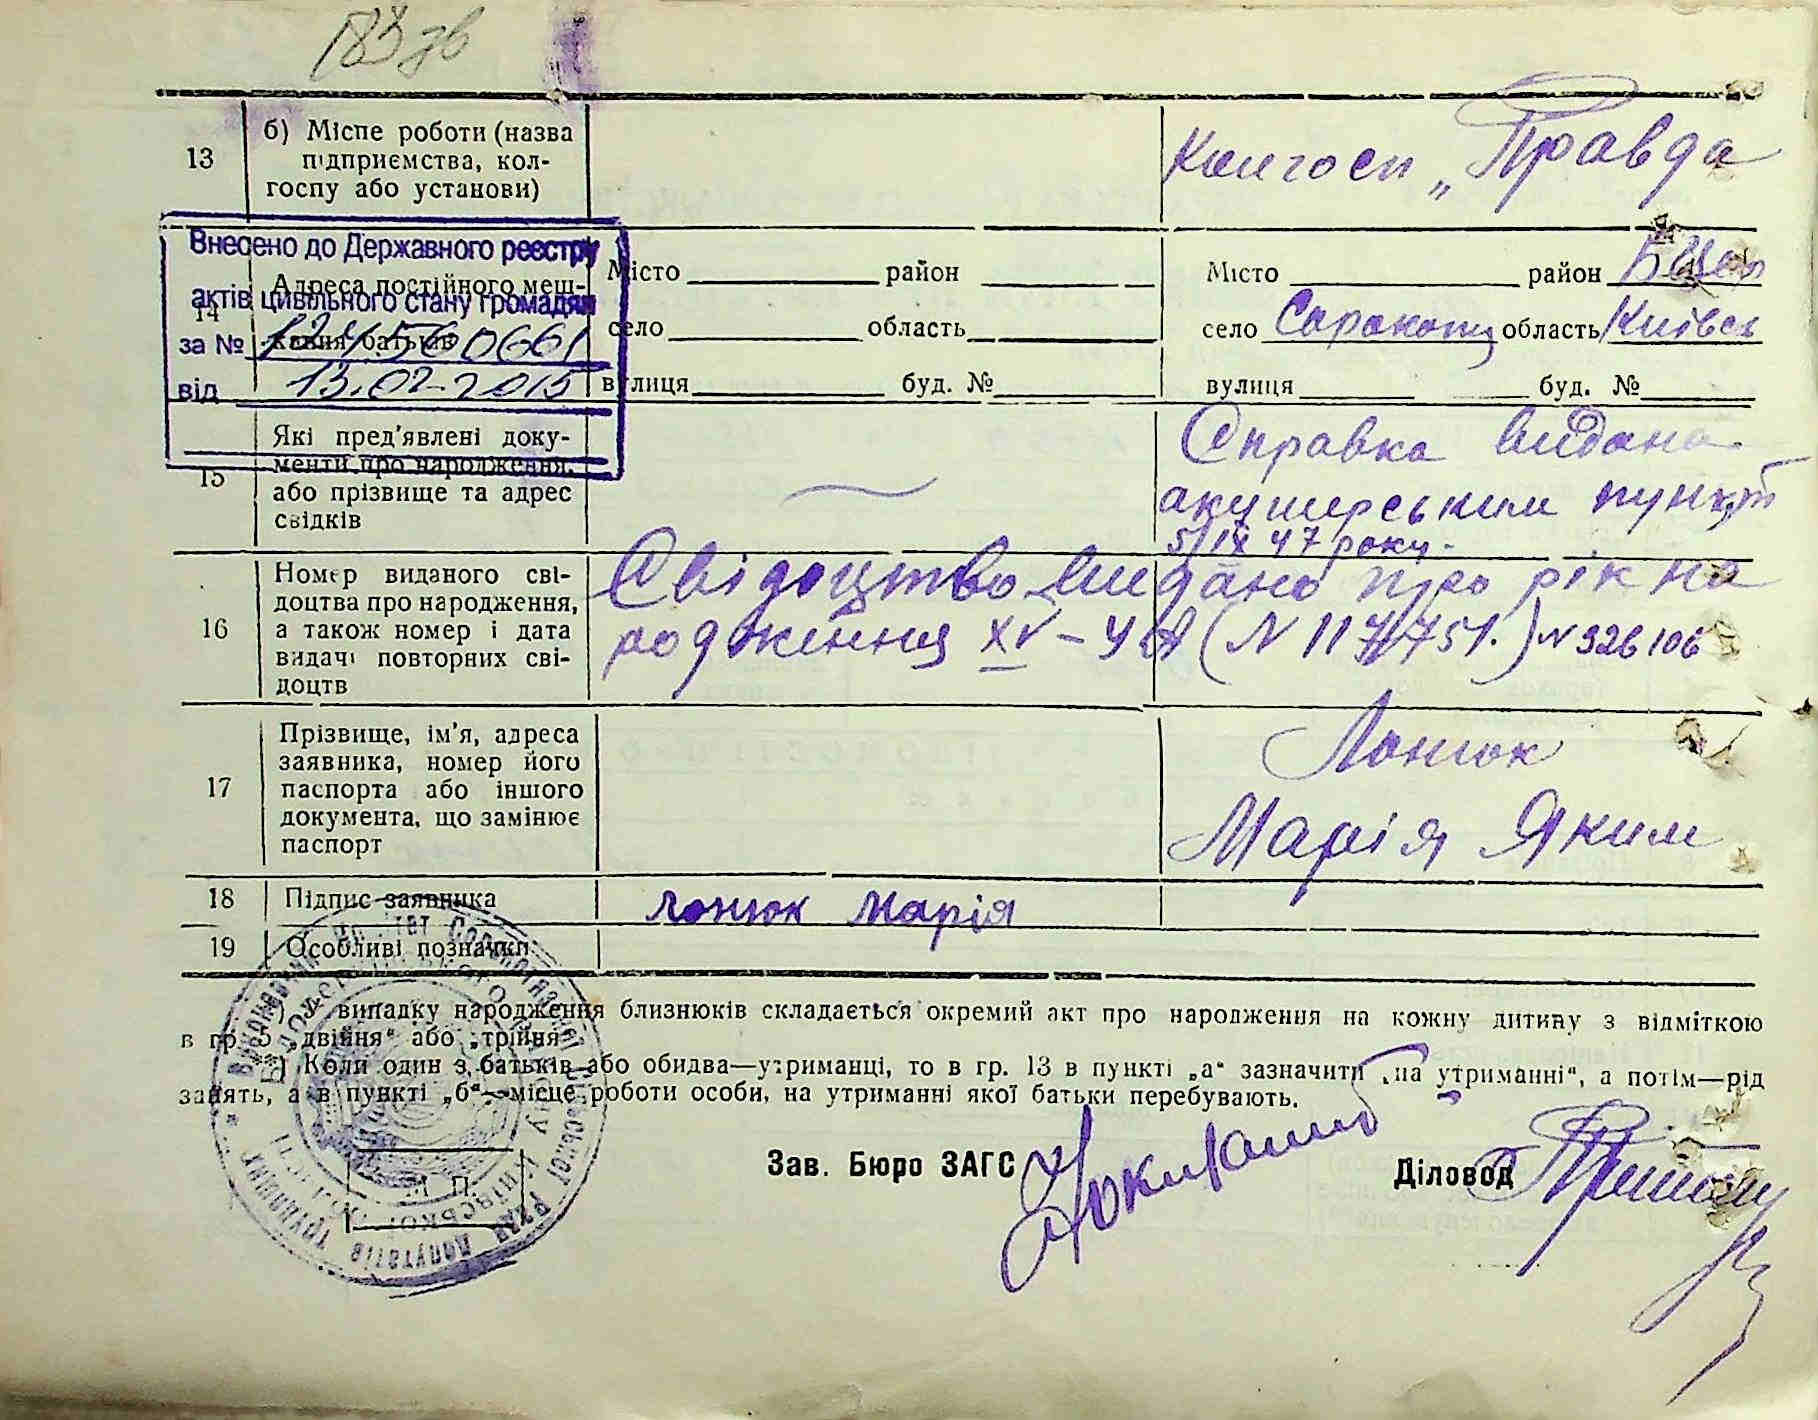 183 зв
13 б) Місце роботи (назва підприємства, колгоспу або установи)
Колгосп „Правда
Внесено до Державного реєстру
актів цивільного стану громадян
за №
від 13.02.2015
14 Адреса постійного мешкання батьків
Місто район
село область
вулиця буд. №
Місто район Б Церк
село область Київськ
вулиця буд. №
15 Які пред'явлені документи про народження, або прізвище та адрес свідків
Справка видана
акушерським пунктом
5/IX 47 року.
16 Номер виданого свідоцтва про народження, а також номер і дата видачі повторних свідоцтв
Свідоцтво видано про рік на
родження XV–УЯ № 326106
17 Прізвище, ім'я, адреса заявника, номер його паспорта або іншого документа, що замінює паспорт
Лонюк
Марія Яким
18 Підпис заявника
Лонюк Марія
19 Особливі позначки
*) У випадку народження близнюків складається окремий акт про народження на кожну дитину з відміткою
в гр. 5 „двійня“ або „трійня“
Коли один з батьків або обидва—утриманці, то в гр. 13 в пункті „а“ зазначити „на утриманні“, а потім—рід
занять, а в пункті „б“—місце роботи особи, на утриманні якої батьки перебувають.
М. П.
Зав. Бюро ЗАГС
Діловод